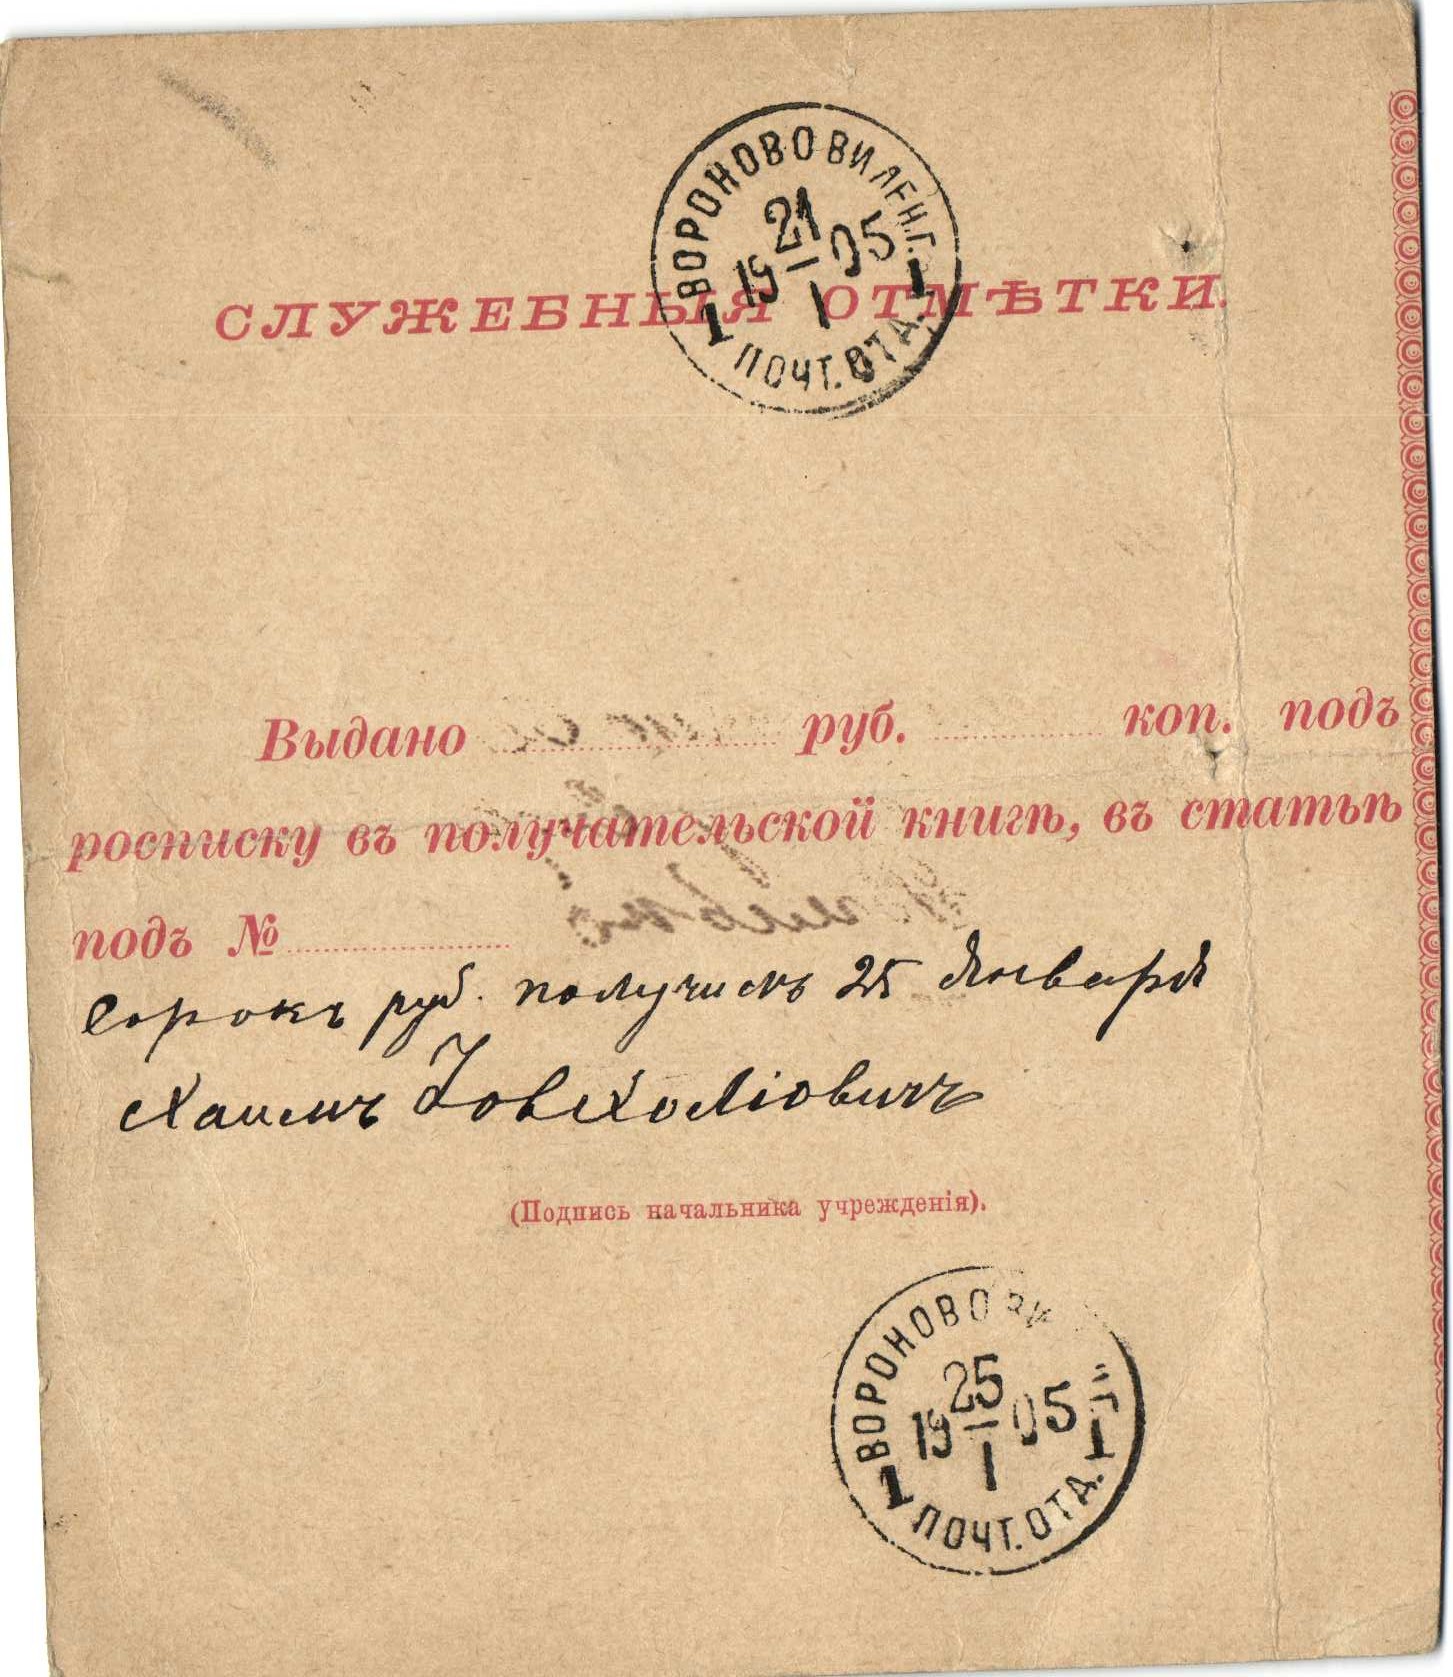 ВОРОНОВО ВИЛЕН.Г.
21
19 — 05
1
1 ПОЧТ.ОТД. 1
СЛУЖЕБНЫЯ ОТМѢТКИ.
Выдано руб. коп. подъ
росписку въ получательской книгѣ, въ статьѣ
подъ №
Сорокъ руб. получилъ 25 Января
Хаимъ
(Подпись начальника учрежденія).
ВОРОНОВО ВИ Г.
25
19 — 05
1
1 ПОЧТ.ОТД. 1